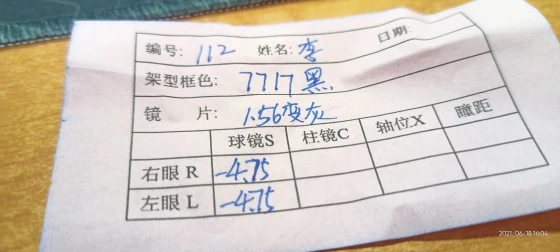 编号: 112 姓名: 李 日期:
架型框色: 7717 黑.
镜 片: 1.56变灰
球镜S 柱镜C 轴位X 瞳距
右眼 R -4.75
左眼 L -4.75
2021/06/18 16:04